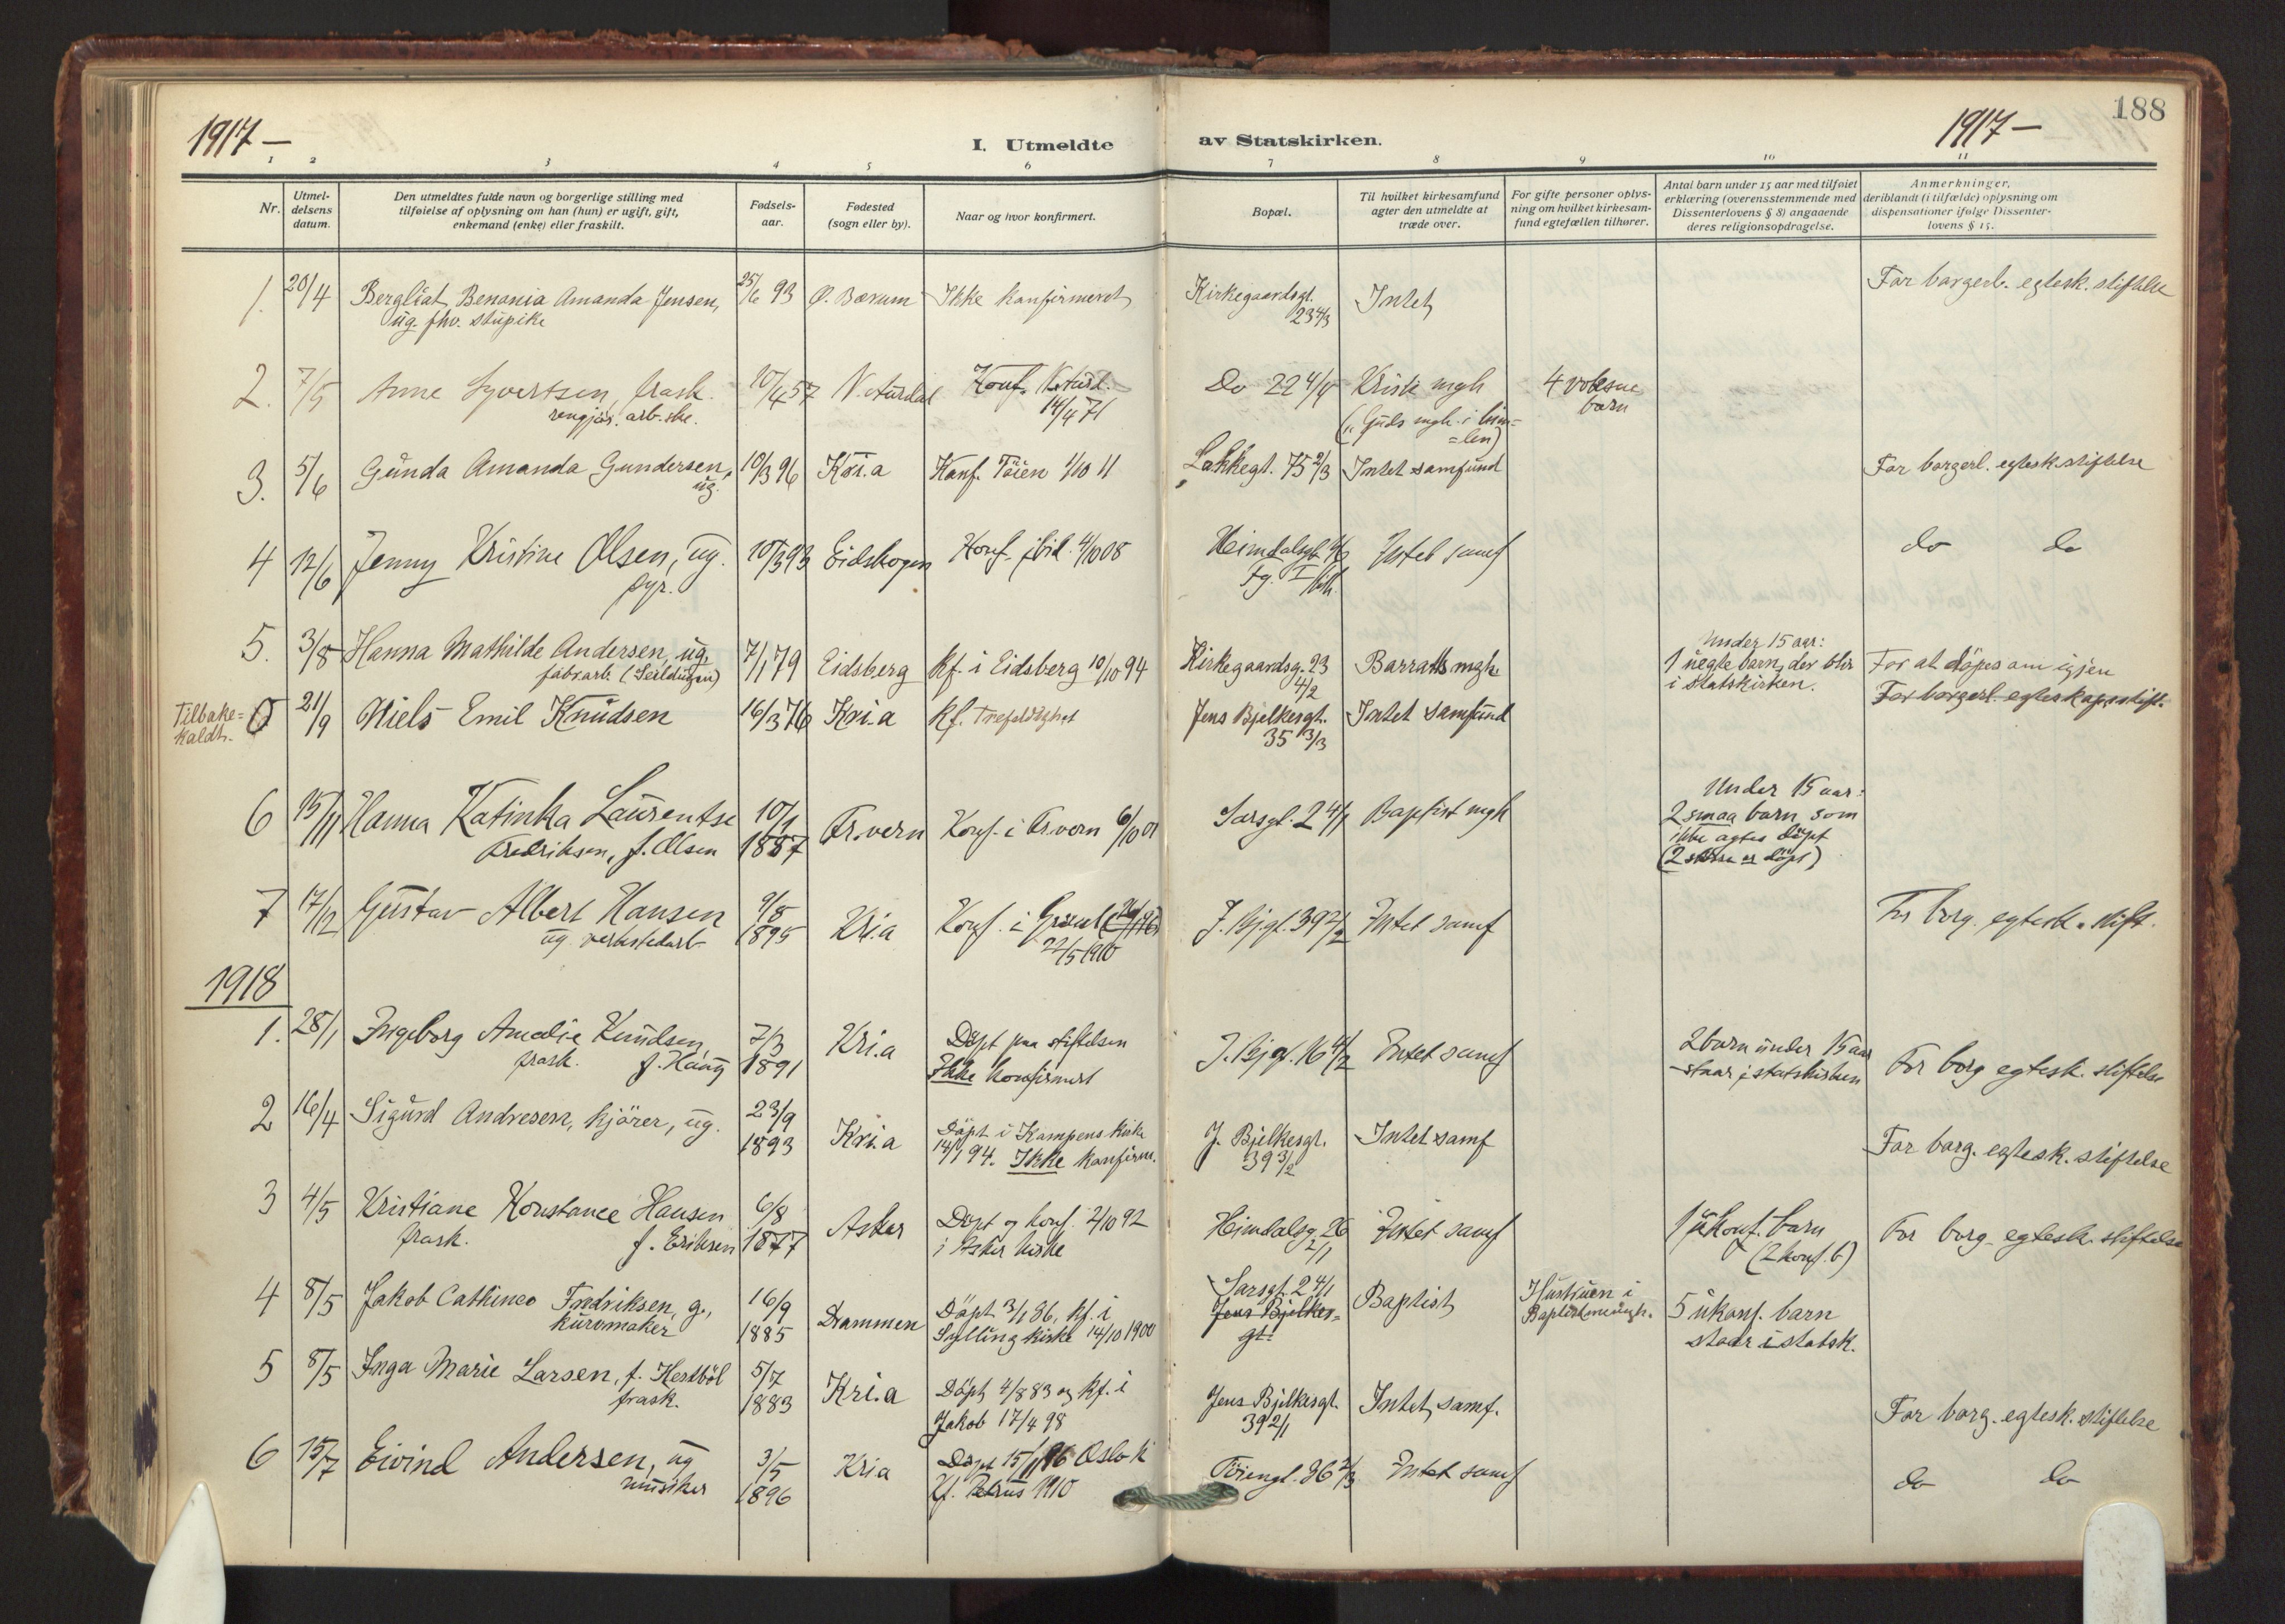 188
1917—
1917—
I. Utmeldte av Statskirken.
1 2 3 4 5 6 7 8 9 10 11
Nr.
Utmel-
delsens
datum.
Den utmeldtes fulde navn og borgerlige stilling med
tilføielse af oplysning om han (hun) er ugift, gift,
enkemand (enke) eller fraskilt.
Fødsels-
aar.
Fødested
(sogn eller by).
Naar og hvor konfirmert.
Bopæl.
Til hvilket kirkesamfund
agter den utmeldte at
træde over.
For gifte personer oplys-
ning om hvilket kirkesam-
fund egtefællen tilhører.
Antal barn under 15 aar med tilføiet
erklæring (overensstemmende med
Dissenterlovens § 8) angaaende
deres religionsopdragelse.
Anmerkninger,
deriblandt (i tilfælde) oplysning om
dispensationer ifølge Dissenter-
lovens § 15.
1. 20/4 Bergliat Benonia Amanda Jensen, 25/6 93 Ø. Bærum Ikke konfirmeret Kirkegaardsgt. Intet For borgerl. egtesk. stiftelse
ug. fhv. stupike 23 4/3
2. 7/5 Anne Syvertsen, frask. 10/4 57 N. Aurdal Konf. N. Aurd. Do 22 4/4 Kristi mgh 4 voksne
rengjør. arb.ske. 14/4 71 („Guds mgh. i him- barn
=len)
3. 5/6 Gunda Amanda Gundersen, 10/3 96 Kri.a Konf. Töien 1/10 11 Lakkegt. 75 2/3 Intet samfund For borgerl. egtesk. stiftelse
ug.
4 12/6 Jenny Kristine Olsen, ug. 10/3 93 Eidskogen Konf. ibid. 4/10 08 Heimdalsgt. Intet samf do do
syr.
5. 3/8 Hanna Mathilde Andersen, ug. 7/1 79 Eidsberg Kf. i Eidsberg 10/10 94 Kirkegaardsg. 23 Barratts mgh Under 15 aar:
fabrarb. (Seildugen) 4/2 1 uegte barn, der blir For at döpes om igjen
i statskirken.
Tilbake-
kaldt. 0 21/9 Niels Emil Knudsen 16/3 76 Kri.a Kf. Trefoldighet Jens Bjelkesgt. Intet samfund For borgerl. egteskapsstift.
35 3/3
6 15/11 Hanna Katinka Laurentse 10/1 Tr.vern Konf. i Tr.vern 6/10 01 Sarsgt. 2 4/1 Baptist mgh Under 15 aar:
Fredriksen, f. Olsen 1887 2 smaa barn som
ikke agtes döpt
(2 større er döpt)
7 17/12 Gustav Albert Hansen 9/8 Kri.a Konf. i Grønl J. Bj.gt. 39 2/2 Intet samf For borg. egtesk. stift.
ug. verkstedarb 1895 22/5 1910
1918
1. 28/1 Ingeborg Amalie Knudsen 7/3 Kri.a Döpt paa stiftelsen J. Bj.gt. 16 4/2 Intet samf 2 barn under 15 aar For borg egtesk. stiftelse
frask. f. Haug 1891 Ikke konfirmert staar i statskirken
2 16/4 Sigurd Andresen, kjörer, ug. 23/9 Kri.a Döpt i Kampens kirke J. Bjelkesgt. Intet samf For borg. egtesk. stiftelse
1893 14/1 94. Ikke konfirm. 39 3/2
3 4/5 Kristiane Konstance Hansen 6/8 Asker Döpt og konf. 2/10 92 Heimdalsg. 26 Intet samf 1 ukonf. barn For borg. egtesk. stiftelse
frask. f. Eriksen 1877 i Asker kirke 2/1 (2 konf. b)
4 8/5 Jakob Cathinco Fredriksen, g., 16/9 Drammen Döpt 3/1 86, kf. i Sarsgt. 2 4/1 Baptist Hustruen i 5 ukonf. barn
kurvmaker 1885 Sylling kirke 14/10 1900 Jens Bjelkes= Baptistmenigh. staar i statsk.
gt.
5 8/5 Inga Marie Larsen, f. Kestböl 5/7 Kri.a Döpt 4/8 83 og kf. i Jens Bjelkesgt. Intet samf. For borg. egtesk. stiftelse
frask. 1883 Jakob 17/4 98 39 2/1
6 15/7 Eivind Andersen, ug 3/5 Kria Döpt 15/11 96 Oslo k Töiengt. 36 2/3 Intet samf do do
musiker 1896 Kf. Petrus 1910